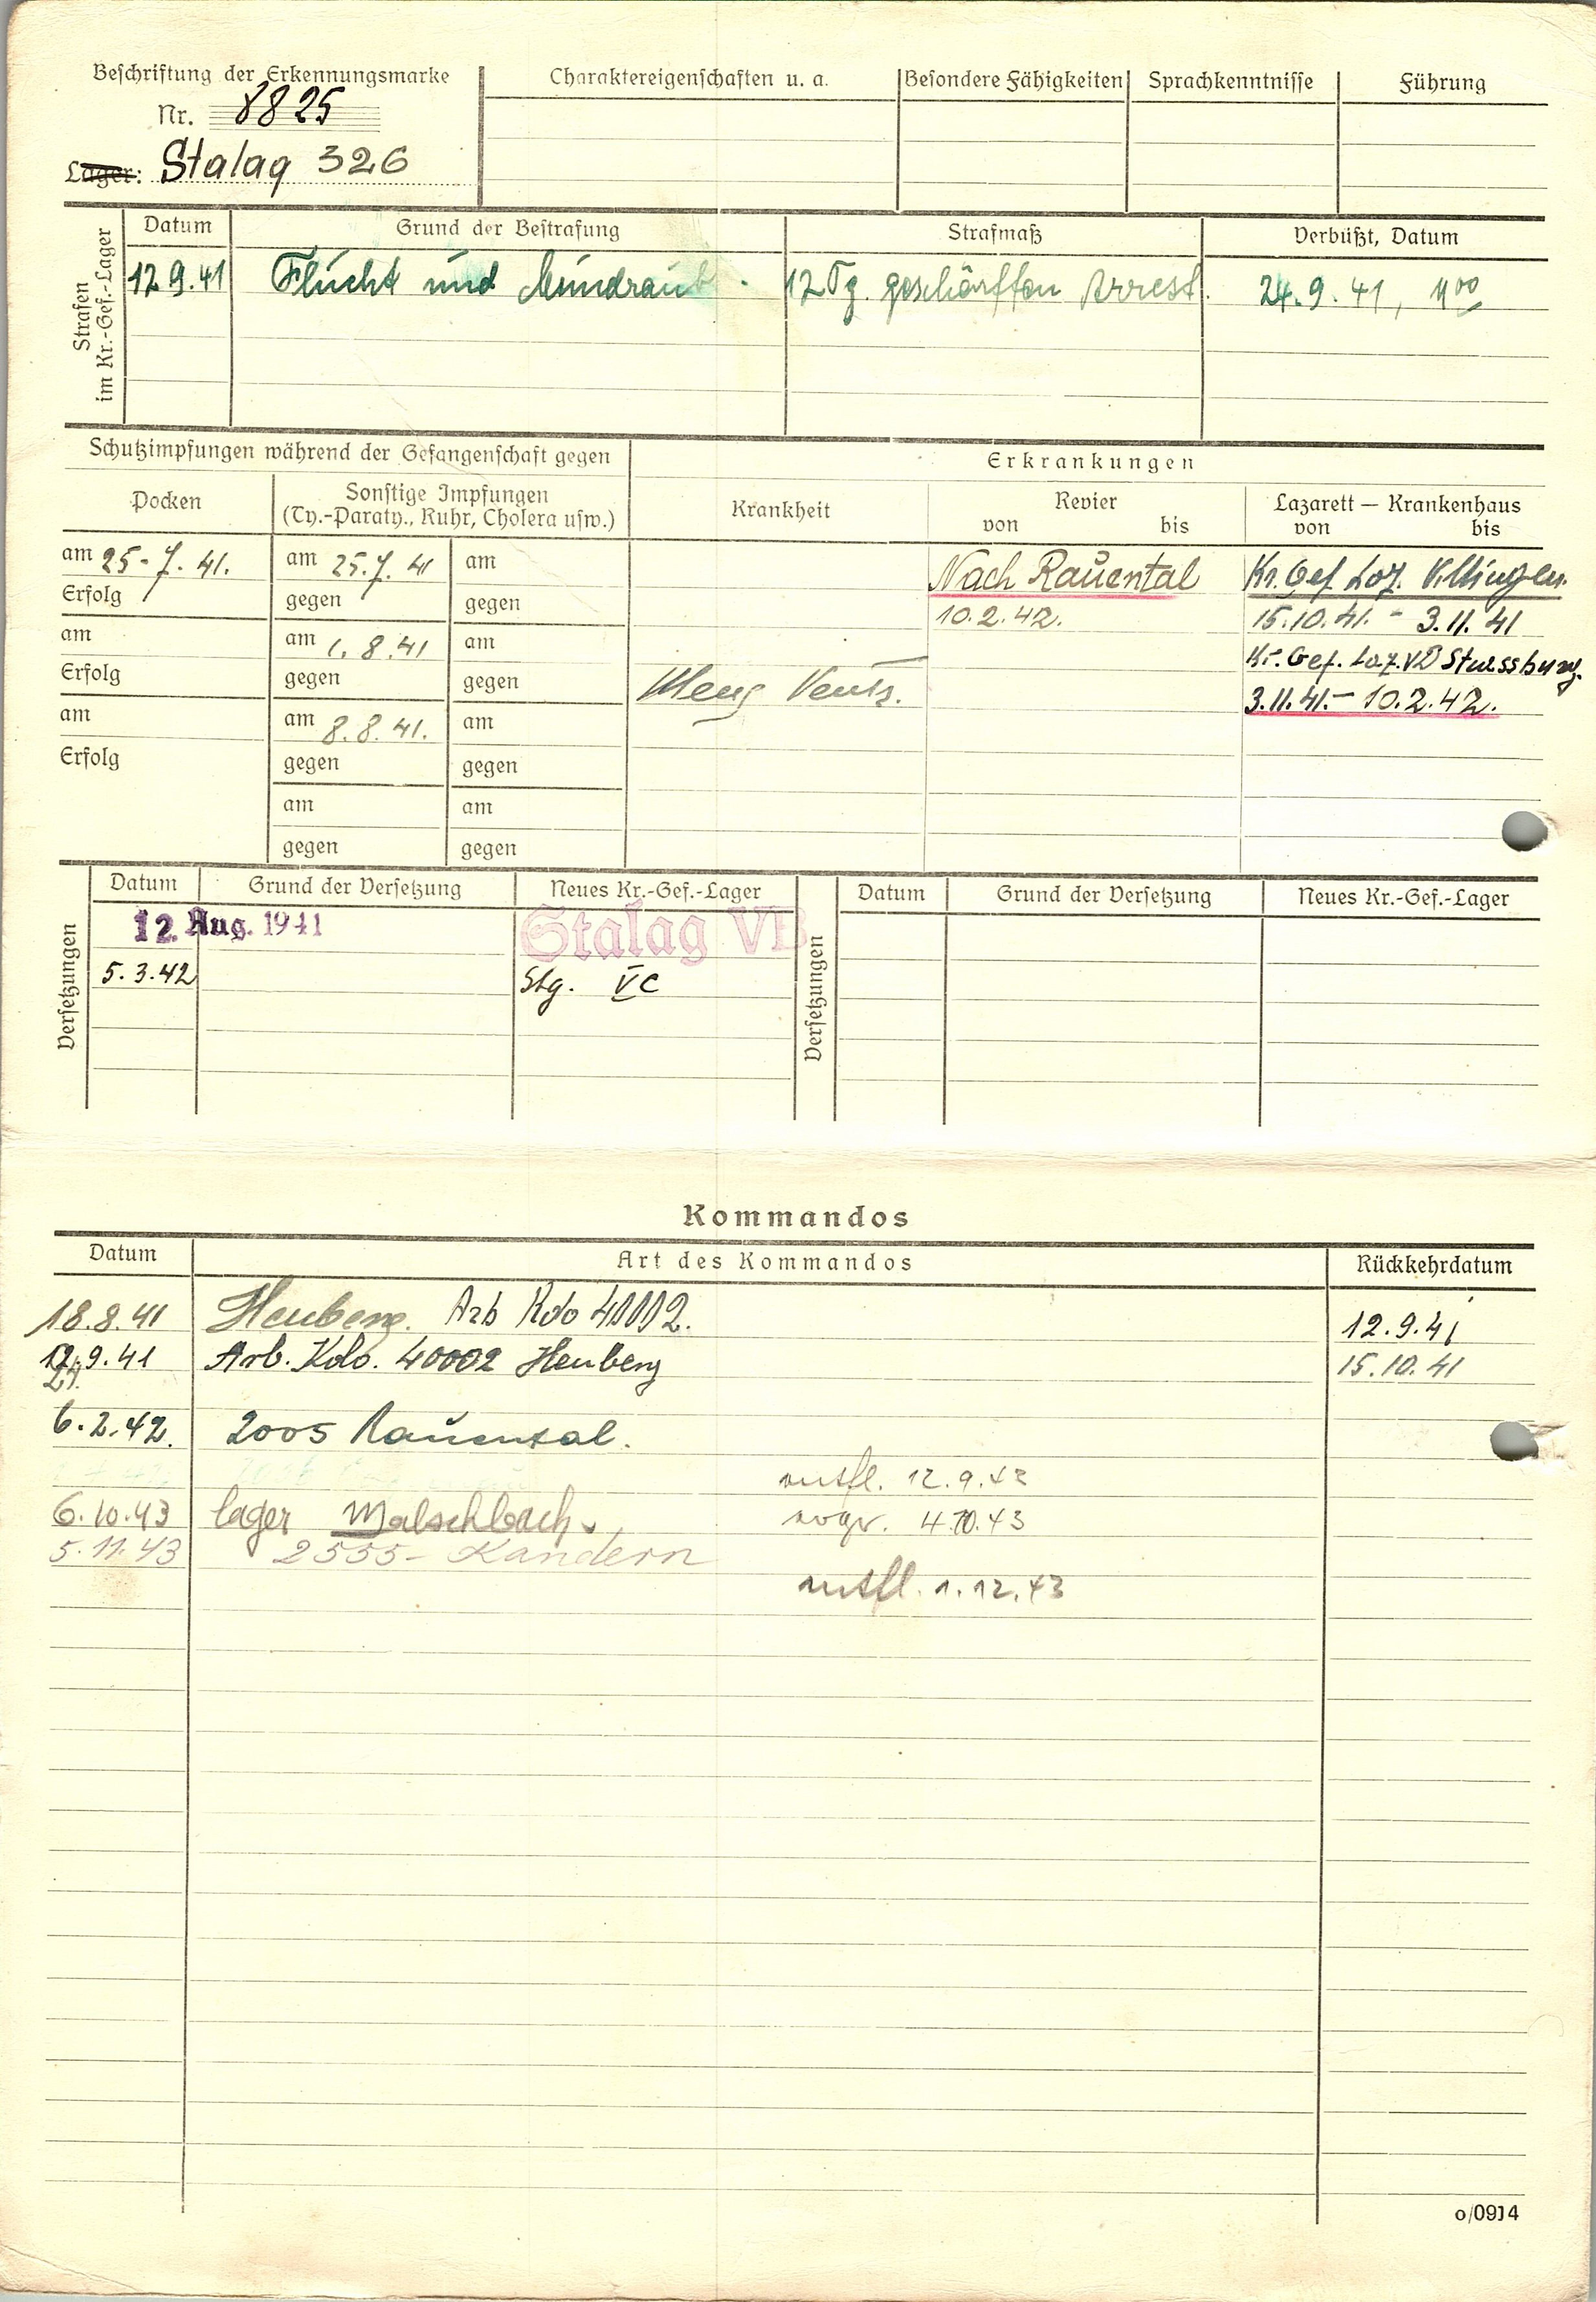 Beschriftung der Erkennungsmarke
Nr. 8825
Lager: Stalag 326
Charaktereigenschaften u. a.
Besondere Fähigkeiten
Sprachkenntnisse
Führung
Strafen
im Kr.-Gef.-Lager
Datum
Grund der Bestrafung
Strafmaß
Verbüßt, Datum
12.9.41
Flucht und Mundraub.
12 Tg. geschärften Arrest.
24.9.41,
Schutzimpfungen während der Gefangenschaft gegen
Erkrankungen
Pocken
Sonstige Impfungen
(Ty.-Paraty., Ruhr, Cholera usw.)
Krankheit
Revier
von bis
Lazarett — Krankenhaus
von bis
am 25.7.41.
am 25.7.41
am
Nach Rauental
Kr. Gef. Laz. Villingen.
Erfolg
gegen
gegen
10.2.42.
15.10.41. - 3.11.41
am
am 1.8.41
am
Kr. Gef. Laz. VD Strassburg.
Erfolg
gegen
gegen
3.11.41. - 10.2.42.
am
am 8.8.41.
am
Erfolg
gegen
gegen
am
am
gegen
gegen
Versetzungen
Datum
Grund der Versetzung
Neues Kr.-Gef.-Lager
Versetzungen
Datum
Grund der Versetzung
Neues Kr.-Gef.-Lager
12. Aug. 1941
Stalag VB
5.3.42
Stg. VC
Kommandos
Datum
Art des Kommandos
Rückkehrdatum
18.8.41
Heuberg. Arb Kdo 40002.
12.9.41
12.9.41
Arb. Kdo. 40002 Heuberg
15.10.41
24.
6.2.42.
2005 Rauental.
entfl. 12.9.43
6.10.43
lager Malschbach,
4.10.43
5.11.43
2555 - Kandern
entfl. 1.12.43
o/0914